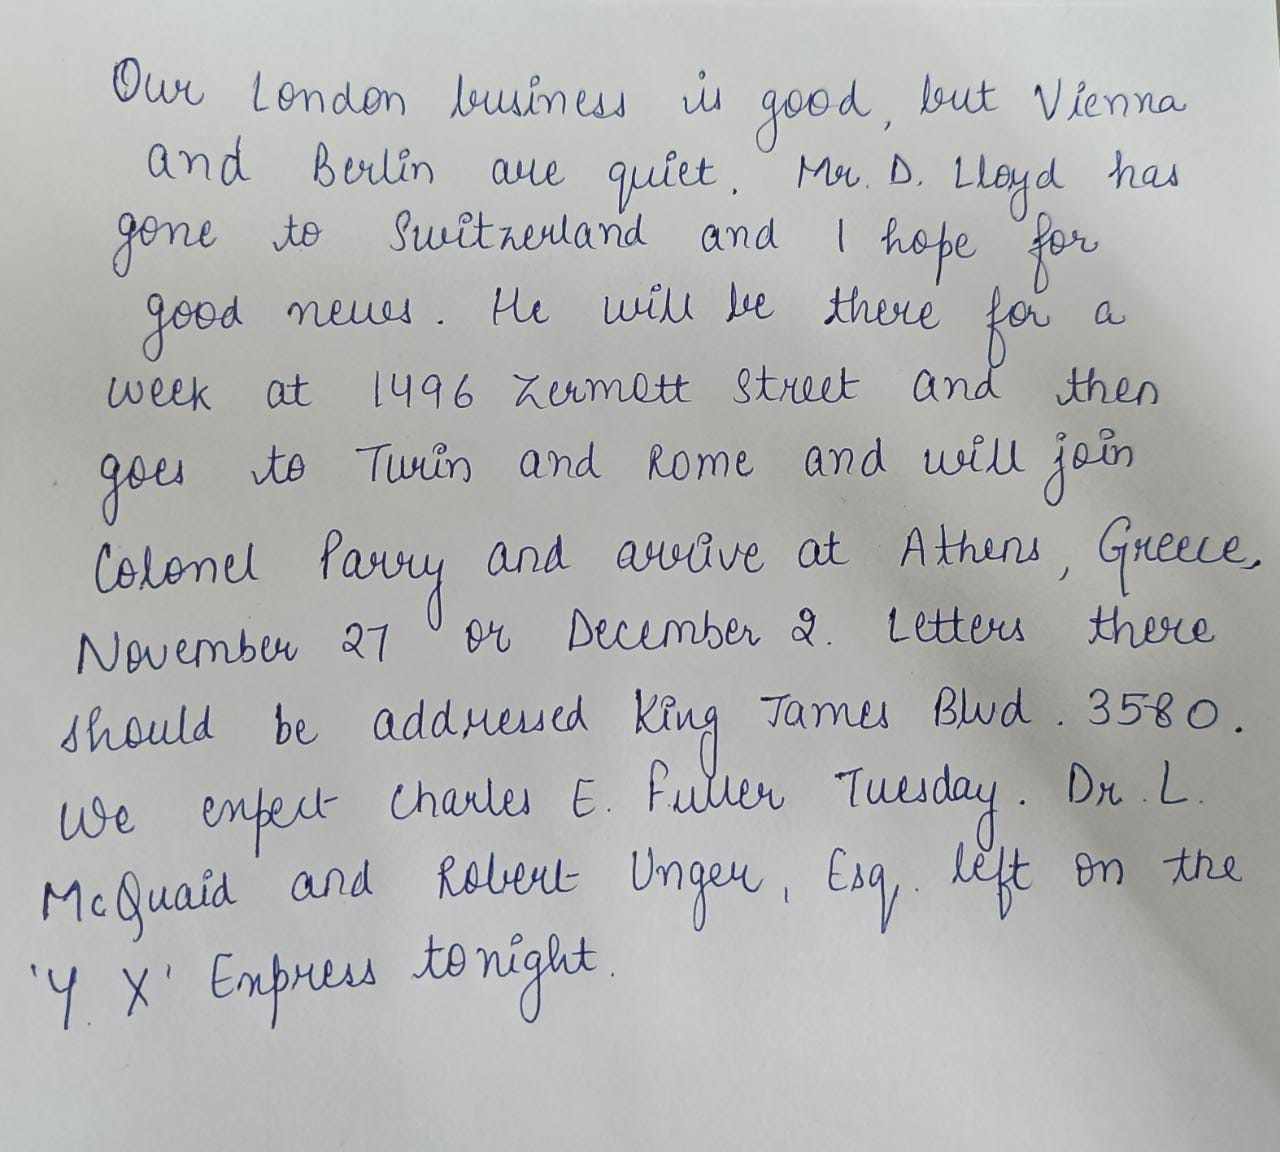 Our London business is good, but Vienna
and Berlin are quiet. Mr. D. Lloyd has
gone to Switzerland and I hope for
good news. He will be there for a
week at 1496 Zermott Street and then
goes to Turin and Rome and will join
Colonel Parry and arrive at Athens, Greece,
November 27 or December 2. Letters there
should be addressed King James Blvd. 3580.
We expect Charles E. Fuller Tuesday. Dr. L.
McQuaid and Robert Unger, Esq. left on the
'Y. X' Express tonight.